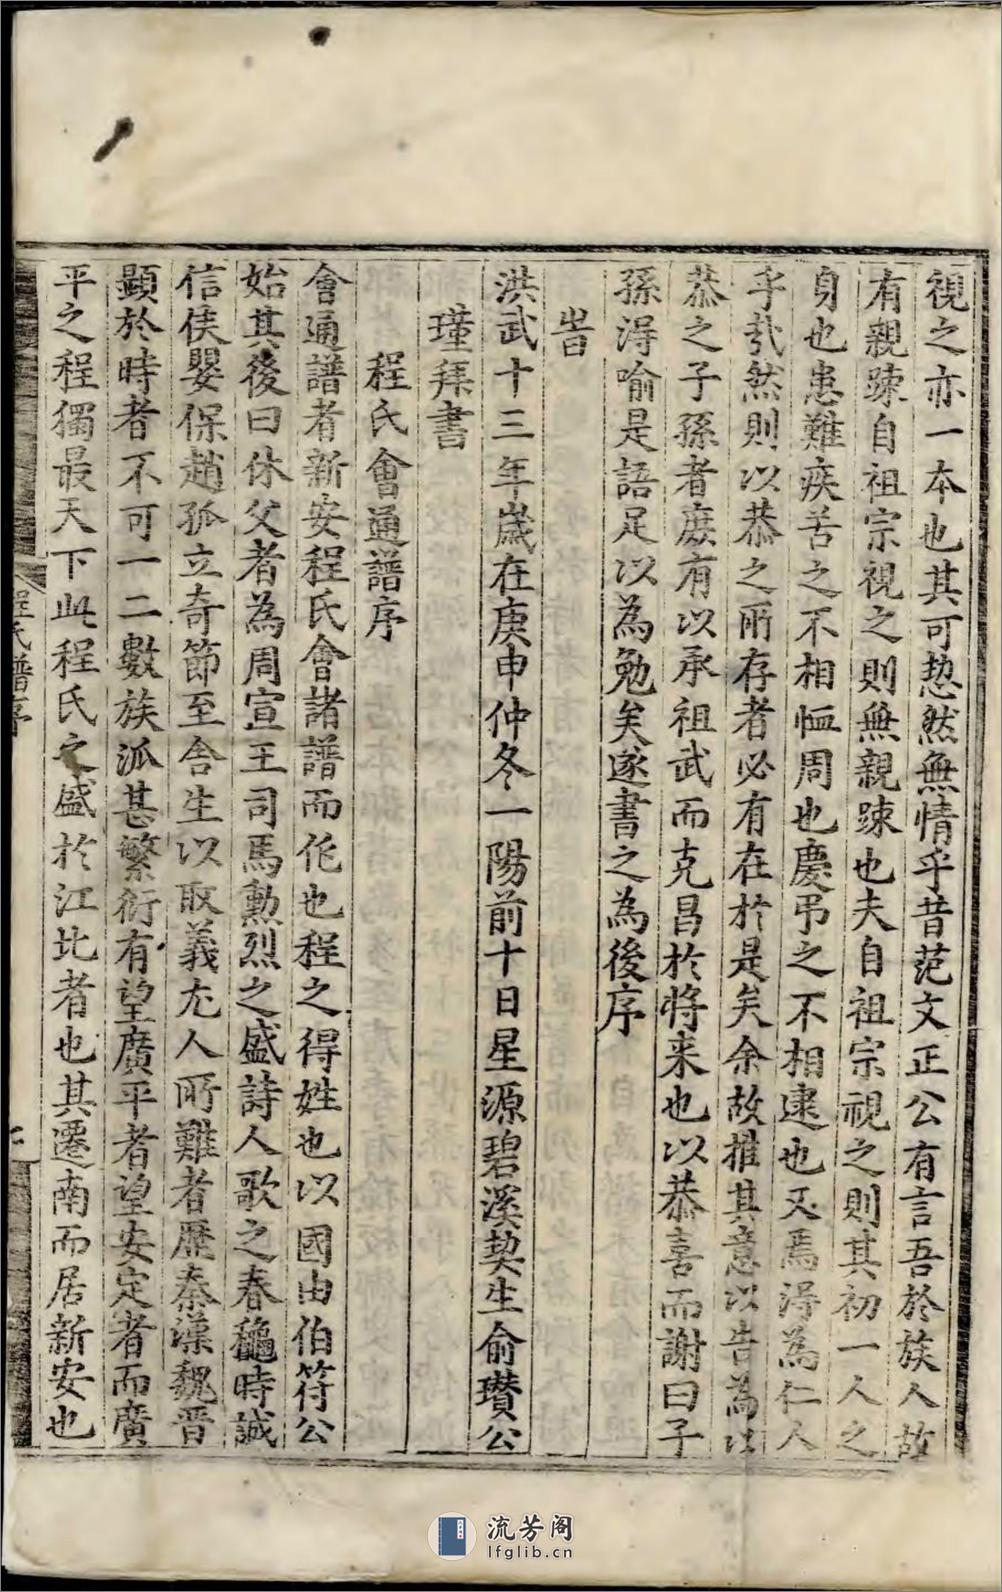 視之亦一本也其可恝然無情乎昔范文正公有言吾於族人故
有親踈自祖宗視之則無親踈也夫自祖宗視之則其初一人之
身也患難疾苦之不相恤周也慶弔之不相逮也又焉得為仁人
乎㢤然則以恭之所存者必有在於是矣余故推其意以告為以
恭之子孫者庻有以承祖武而克昌於將来也以恭喜而謝曰子
孫得喻是語足以為勉矣遂書之為後序
旹
洪武十三年歲在庚申仲冬一陽前十日星源碧溪契生俞瓚公
瑾拜書
程氏會通譜序
會通譜者新安程氏會諸譜而作也程之得姓也以國由伯符公
始其後曰休父者為周宣王司馬勲烈之盛詩人歌之春龝時誠
信侯嬰保趙孤立奇節至舎生以取義尤人所難者歷秦漢魏晋
顯於時者不可一二數族派甚繁衍有望廣平者望安定者而廣
平之程獨最天下此程氏之盛於江北者也其遷南而居新安也
程氏譜序
流芳阁
lfglib.cn